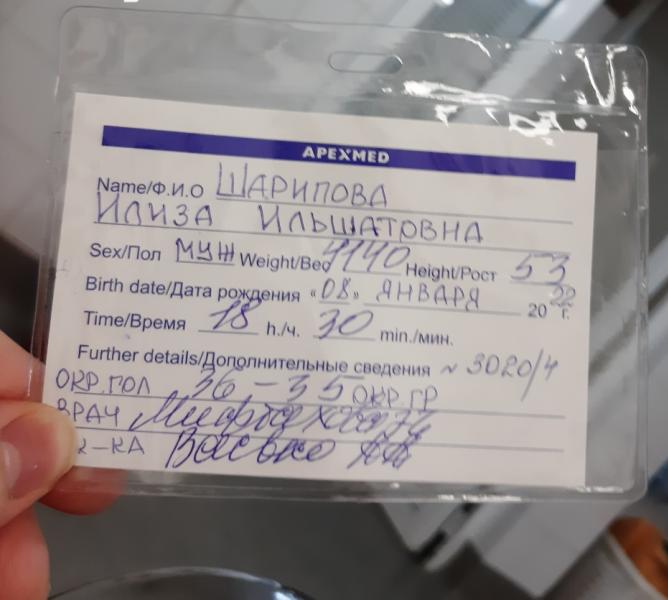 APEXMED
Name/Ф.И.О ШАРИПОВА
ИЛИЗА ИЛЬШАТОВНА
Sex/Пол МУЖ Weight/Вес 4140 Height/Рост 53
Birth date/Дата рождения «08» ЯНВАРЯ 2022 г.
Time/Время 18 h./ч. 30 min./мин.
Further details/Дополнительные сведения ~ 3020/4
ОКР.ГОЛ 36-35 ОКР.ГР
ВРАЧ
К-КА Васько